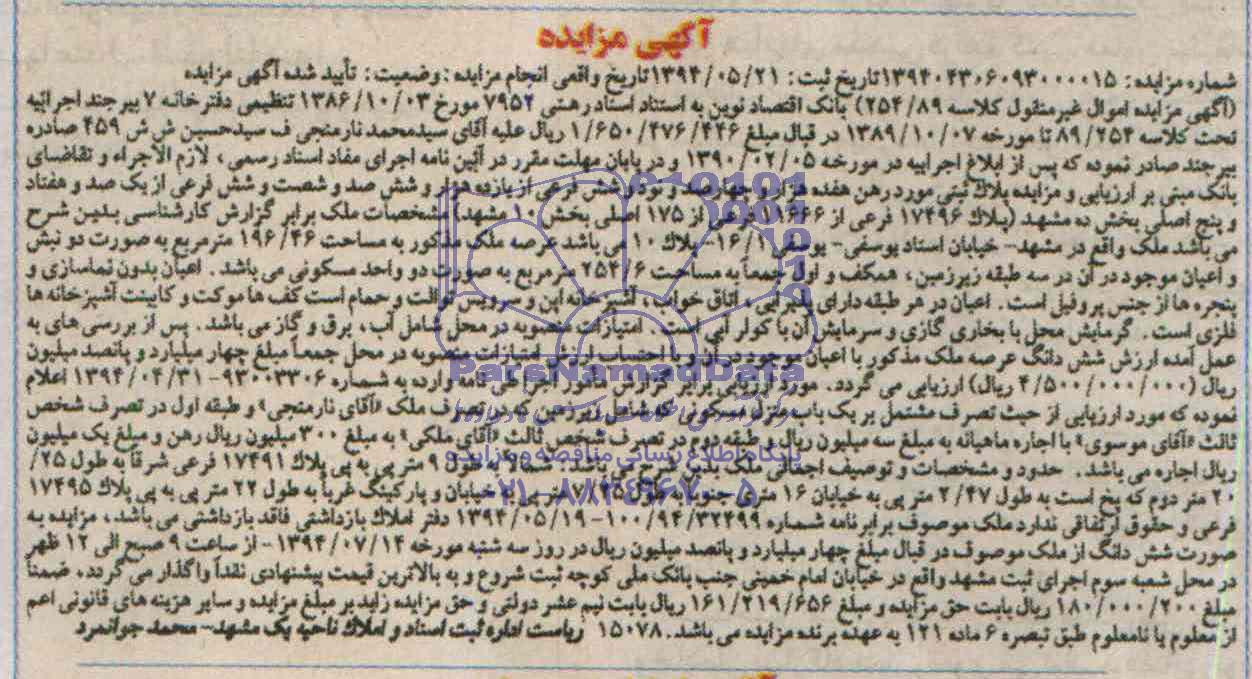 آگهی مزایده
شماره مزایده: ۱۳۹۴۰۴۳۰۶۰۹۳۰۰۰۰۱۵ تاریخ ثبت: ۱۳۹۴/۰۵/۲۱ تاریخ واقعی انجام مزایده: وضعیت: تأیید شده آگهی مزایده
(آگهی مزایده اموال غیرمنقول کلاسه ۲۵۴/۸۹) بانک اقتصاد نوین به استناد اسناد رهنی ۷۹۵۲ مورخ ۱۳۸۶/۱۰/۰۳ تنظیمی دفترخانه ۷ بیرجند اجرائیه
تحت کلاسه ۸۹/۲۵۴ تا مورخه ۱۳۸۹/۱۰/۰۷ در قبال مبلغ ۱/۶۵۰/۲۷۶/۴۴۶ ریال علیه آقای سیدمحمد نارمنجی ف سیدحسین ش ش ۴۵۹ صادره
بیرجند صادر نموده که پس از ابلاغ اجراییه در مورخه ۱۳۹۰/۰۲/۰۵ و در پایان مهلت مقرر در آئین نامه اجرای مفاد اسناد رسمی، لازم الاجراء و تقاضای
بانک مبنی بر ارزیابی و مزایده پلاک ثبتی مورد رهن هفده هزار و چهارصد و نود و شش فرعی از یازده هزار و شش صد و شصت و شش فرعی از یک صد و هفتاد
و پنج اصلی بخش ده مشهد (پلاک ۱۷۴۹۶ فرعی از ۱۱۶۶۶ فرعی از ۱۷۵ اصلی بخش ۱۰ مشهد) مشخصات ملک برابر گزارش کارشناسی بدین شرح
می باشد ملک واقع در مشهد- خیابان استاد یوسفی- یوسفی ۱۶/۱- پلاک ۱۰ می باشد عرصه ملک مذکور به مساحت ۱۹۶/۴۶ مترمربع به صورت دو نبش
و اعیان موجود در آن در سه طبقه زیرزمین، همکف و اول جمعاً به مساحت ۲۵۴/۶ مترمربع به صورت دو واحد مسکونی می باشد. اعیان بدون نماسازی و
پنجره ها از جنس پروفیل است. اعیان در هر طبقه دارای پذیرایی، اتاق خواب، آشپزخانه اپن و سرویس توالت و حمام است کف ها موکت و کابینت آشپزخانه ها
فلزی است. گرمایش محل با بخاری گازی و سرمایش آن با کولر آبی است. امتیازات منصوبه در محل شامل آب، برق و گاز می باشد. پس از بررسی های به
عمل آمده ارزش شش دانگ عرصه ملک مذکور با اعیان موجود در آن و با احتساب ارزش امتیازات منصوبه در محل جمعاً مبلغ چهار میلیارد و پانصد میلیون
ریال (۴/۵۰۰/۰۰۰/۰۰۰ ریال) ارزیابی می گردد. مورد ارزیابی برابر گزارش مامور اجرا طی نامه وارده به شماره ۹۳۰۰۳۳۰۶-۱۳۹۴/۰۴/۳۱ اعلام
نموده که مورد ارزیابی از حیث تصرف مشتمل بر یک باب منزل مسکونی که شامل زیرزمین که در تصرف ملک «آقای نارمنجی» و طبقه اول در تصرف شخص
ثالث «آقای موسوی» با اجاره ماهیانه به مبلغ سه میلیون ریال و طبقه دوم در تصرف شخص ثالث «آقای ملکی» به مبلغ ۳۰۰ میلیون ریال رهن و مبلغ یک میلیون
ریال اجاره می باشد. حدود و مشخصات و توصیف اجمالی ملک بدین شرح می باشد: شمالاً به طول ۹ متر پی به پی پلاک ۱۷۴۹۱ فرعی شرقاً به طول ۲۵/
۲۰ متر دوم که پخ است به طول ۲/۴۷ متر پی به خیابان ۱۶ متری جنوباً به طول متر پی به خیابان و پارکینگ غرباً به طول ۲۲ متر پی به پی پلاک ۱۷۴۹۵
فرعی و حقوق ارتفاقی ندارد ملک موصوف برابر نامه شماره ۱۰۰/۹۴/۳۲۴۹۹-۱۳۹۴/۰۵/۱۹ دفتر املاک بازداشتی فاقد بازداشتی می باشد، مزایده به
صورت شش دانگ از ملک موصوف در قبال مبلغ چهار میلیارد و پانصد میلیون ریال در روز سه شنبه مورخه ۱۳۹۴/۰۷/۱۴- از ساعت ۹ صبح الی ۱۲ ظهر
در محل شعبه سوم اجرای ثبت مشهد واقع در خیابان امام خمینی جنب بانک ملی کوچه ثبت شروع و به بالاترین قیمت پیشنهادی نقداً واگذار می گردد، ضمناً
مبلغ ۱۸۰/۰۰۰/۲۰۰ ریال بابت حق مزایده و مبلغ ۱۶۱/۲۱۹/۶۵۶ ریال بابت نیم عشر دولتی و حق مزایده زاید بر مبلغ مزایده و سایر هزینه های قانونی اعم
از معلوم یا نامعلوم طبق تبصره ۶ ماده ۱۲۱ به عهده برنده مزایده می باشد. ۱۵۰۷۸ ریاست اداره ثبت اسناد و املاک ناحیه یک مشهد- محمد جوانمرد
ParsNamadData
پایگاه اطلاع رسانی مناقصه و مزایده
۰۲۱-۸۸۳۴۹۶۷۰-۵